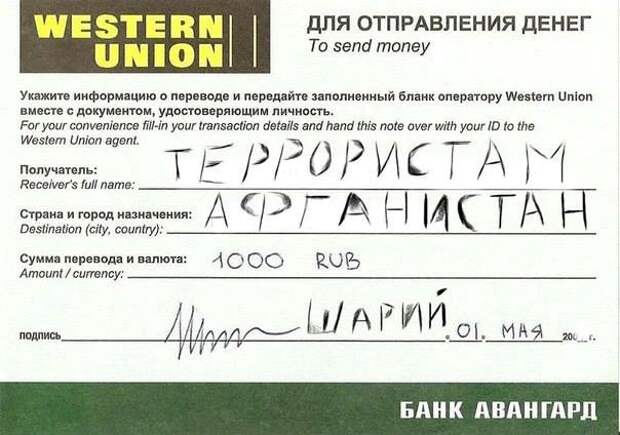 WESTERN
UNION
ДЛЯ ОТПРАВЛЕНИЯ ДЕНЕГ
To send money
Укажите информацию о переводе и передайте заполненный бланк оператору Western Union
вместе с документом, удостоверяющим личность.
For your convenience fill-in your transaction details and hand this note over with your ID to the
Western Union agent.
Получатель: ТЕРРОРИСТАМ
Receiver's full name:
Страна и город назначения: АФГАНИСТАН
Destination (city, country):
Сумма перевода и валюта: 1000 RUB
Amount / currency:
ШАРИЙ
подпись .01. МАЯ 200 г.
БАНК АВАНГАРД